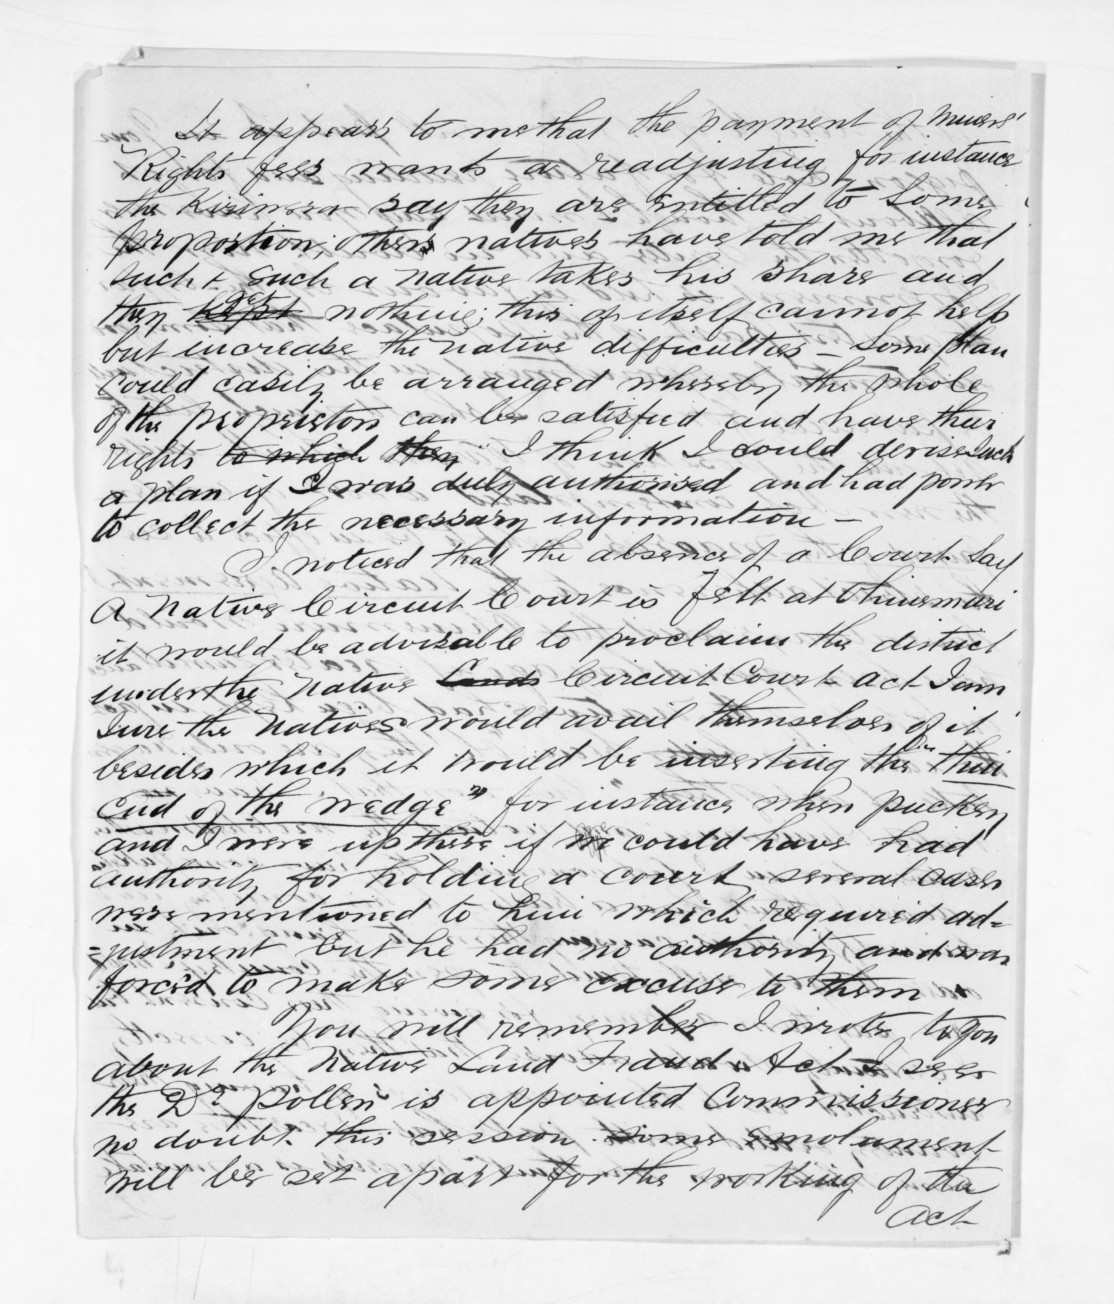 It appears to me that the payment of Miners'
Rights fees wants a readjusting for instance
the say they are entitled to some
proportion; other natives have told me that
such & such a native takes his share and
they get kept nothing; this of itself cannot help
but increase the native difficulties – some plan
could easily be arranged whereby the whole
of the proprietors can be satisfied and have their
rights to which they I think I could devise such
a plan if I was duly authorised and had power
to collect the necessary information –
I noticed that the absence of a Court say
a Native Circuit Court is felt at Ohinemuri
it would be advisable to proclaim the district
under the Native Lands Circuit Court Act I am
sure the Natives would avail themselves of it
besides which it would be inserting the "thin
end of the wedge" for instance when Puckey
and I were up there if he could have had
authority for holding a court, several cases
were mentioned to him which required ad=
=justment but he had no authority and was
forced to make some excuse to them.
You will remember I wrote to you
about the Native Land Frauds Act I see
the Dr. Pollen is appointed Commissioner
no doubt this session some emolument
will be set apart for the working of the
Act